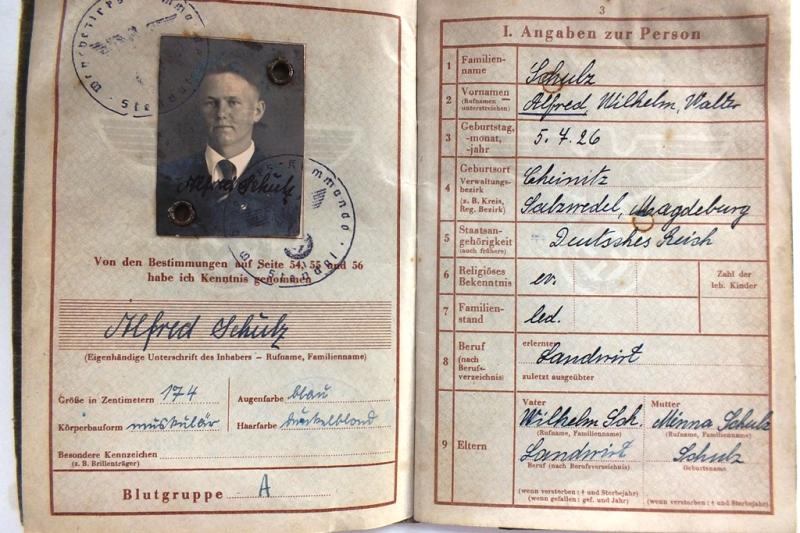 Alfred Schulz
Von den Bestimmungen auf Seite 54, 55 und 56
habe ich Kenntnis genommen
Alfred Schulz
(Eigenhändige Unterschrift des Inhabers – Rufname, Familienname)
Größe in Zentimetern 174
Augenfarbe blau
Körperbauform muskulär
Haarfarbe dunkelblond
Besondere Kennzeichen
(z. B. Brillenträger)
Blutgruppe A
3
I. Angaben zur Person
1 Familienname Schulz
2 Vornamen (Rufnamen unterstreichen) Alfred, Wilhelm, Walter
3 Geburtstag, -monat, -jahr 5.4.26
4 Geburtsort Verwaltungsbezirk (z. B. Kreis, Reg. Bezirk) Cheinitz
Salzwedel, Magdeburg
5 Staatsangehörigkeit (auch frühere) Deutsches Reich
6 Religiöses Bekenntnis ev.
Zahl der leb. Kinder
7 Familienstand led.
8 Beruf (nach Berufsverzeichnis) erlernter Landwirt
zuletzt ausgeübter
9 Eltern
Vater
Wilhelm Sch.
(Rufname, Familienname)
Landwirt
Beruf (nach Berufsverzeichnis)
(wenn verstorben: † und Sterbejahr)
(wenn gefallen: gef. und Jahr)
Mutter
Minna Schulz
(Rufname, Familienname)
Schulz
Geburtsname
(wenn verstorben: † und Sterbejahr)